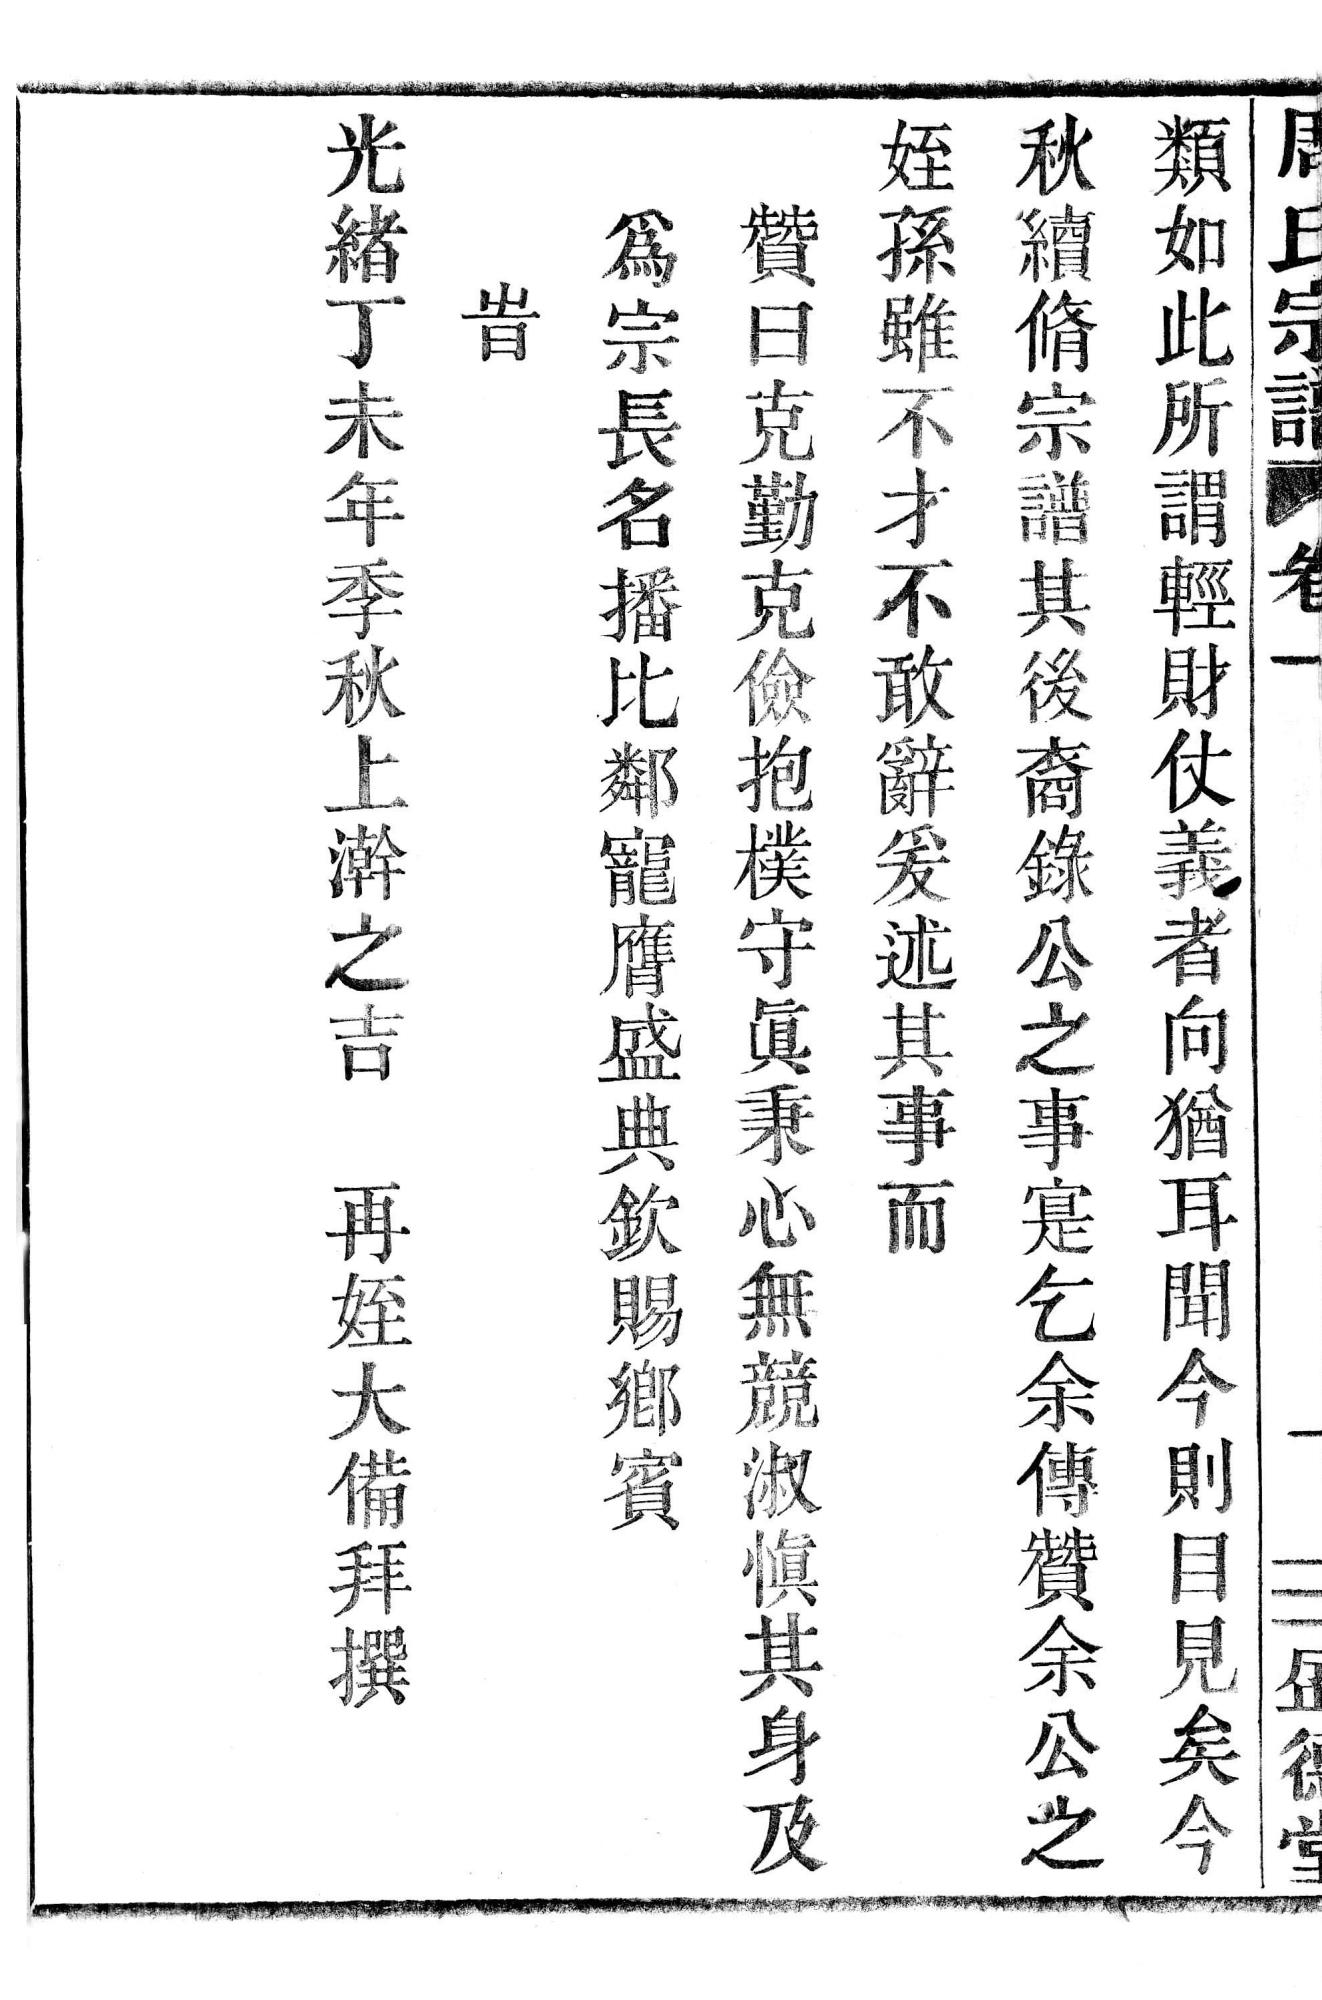 周氏宗譜 卷一 盛德堂
類如此所謂輕財仗義者向猶耳聞今則目見矣今
秋續脩宗譜其後裔錄公之事寔乞余傳贊余公之
姪孫雖不才不敢辭爰述其事而
贊曰克勤克儉抱樸守眞秉心無競淑慎其身及
爲宗長名播比鄰寵膺盛典欽賜鄉賓
旹
光緒丁未年季秋上澣之吉 再姪大備拜撰